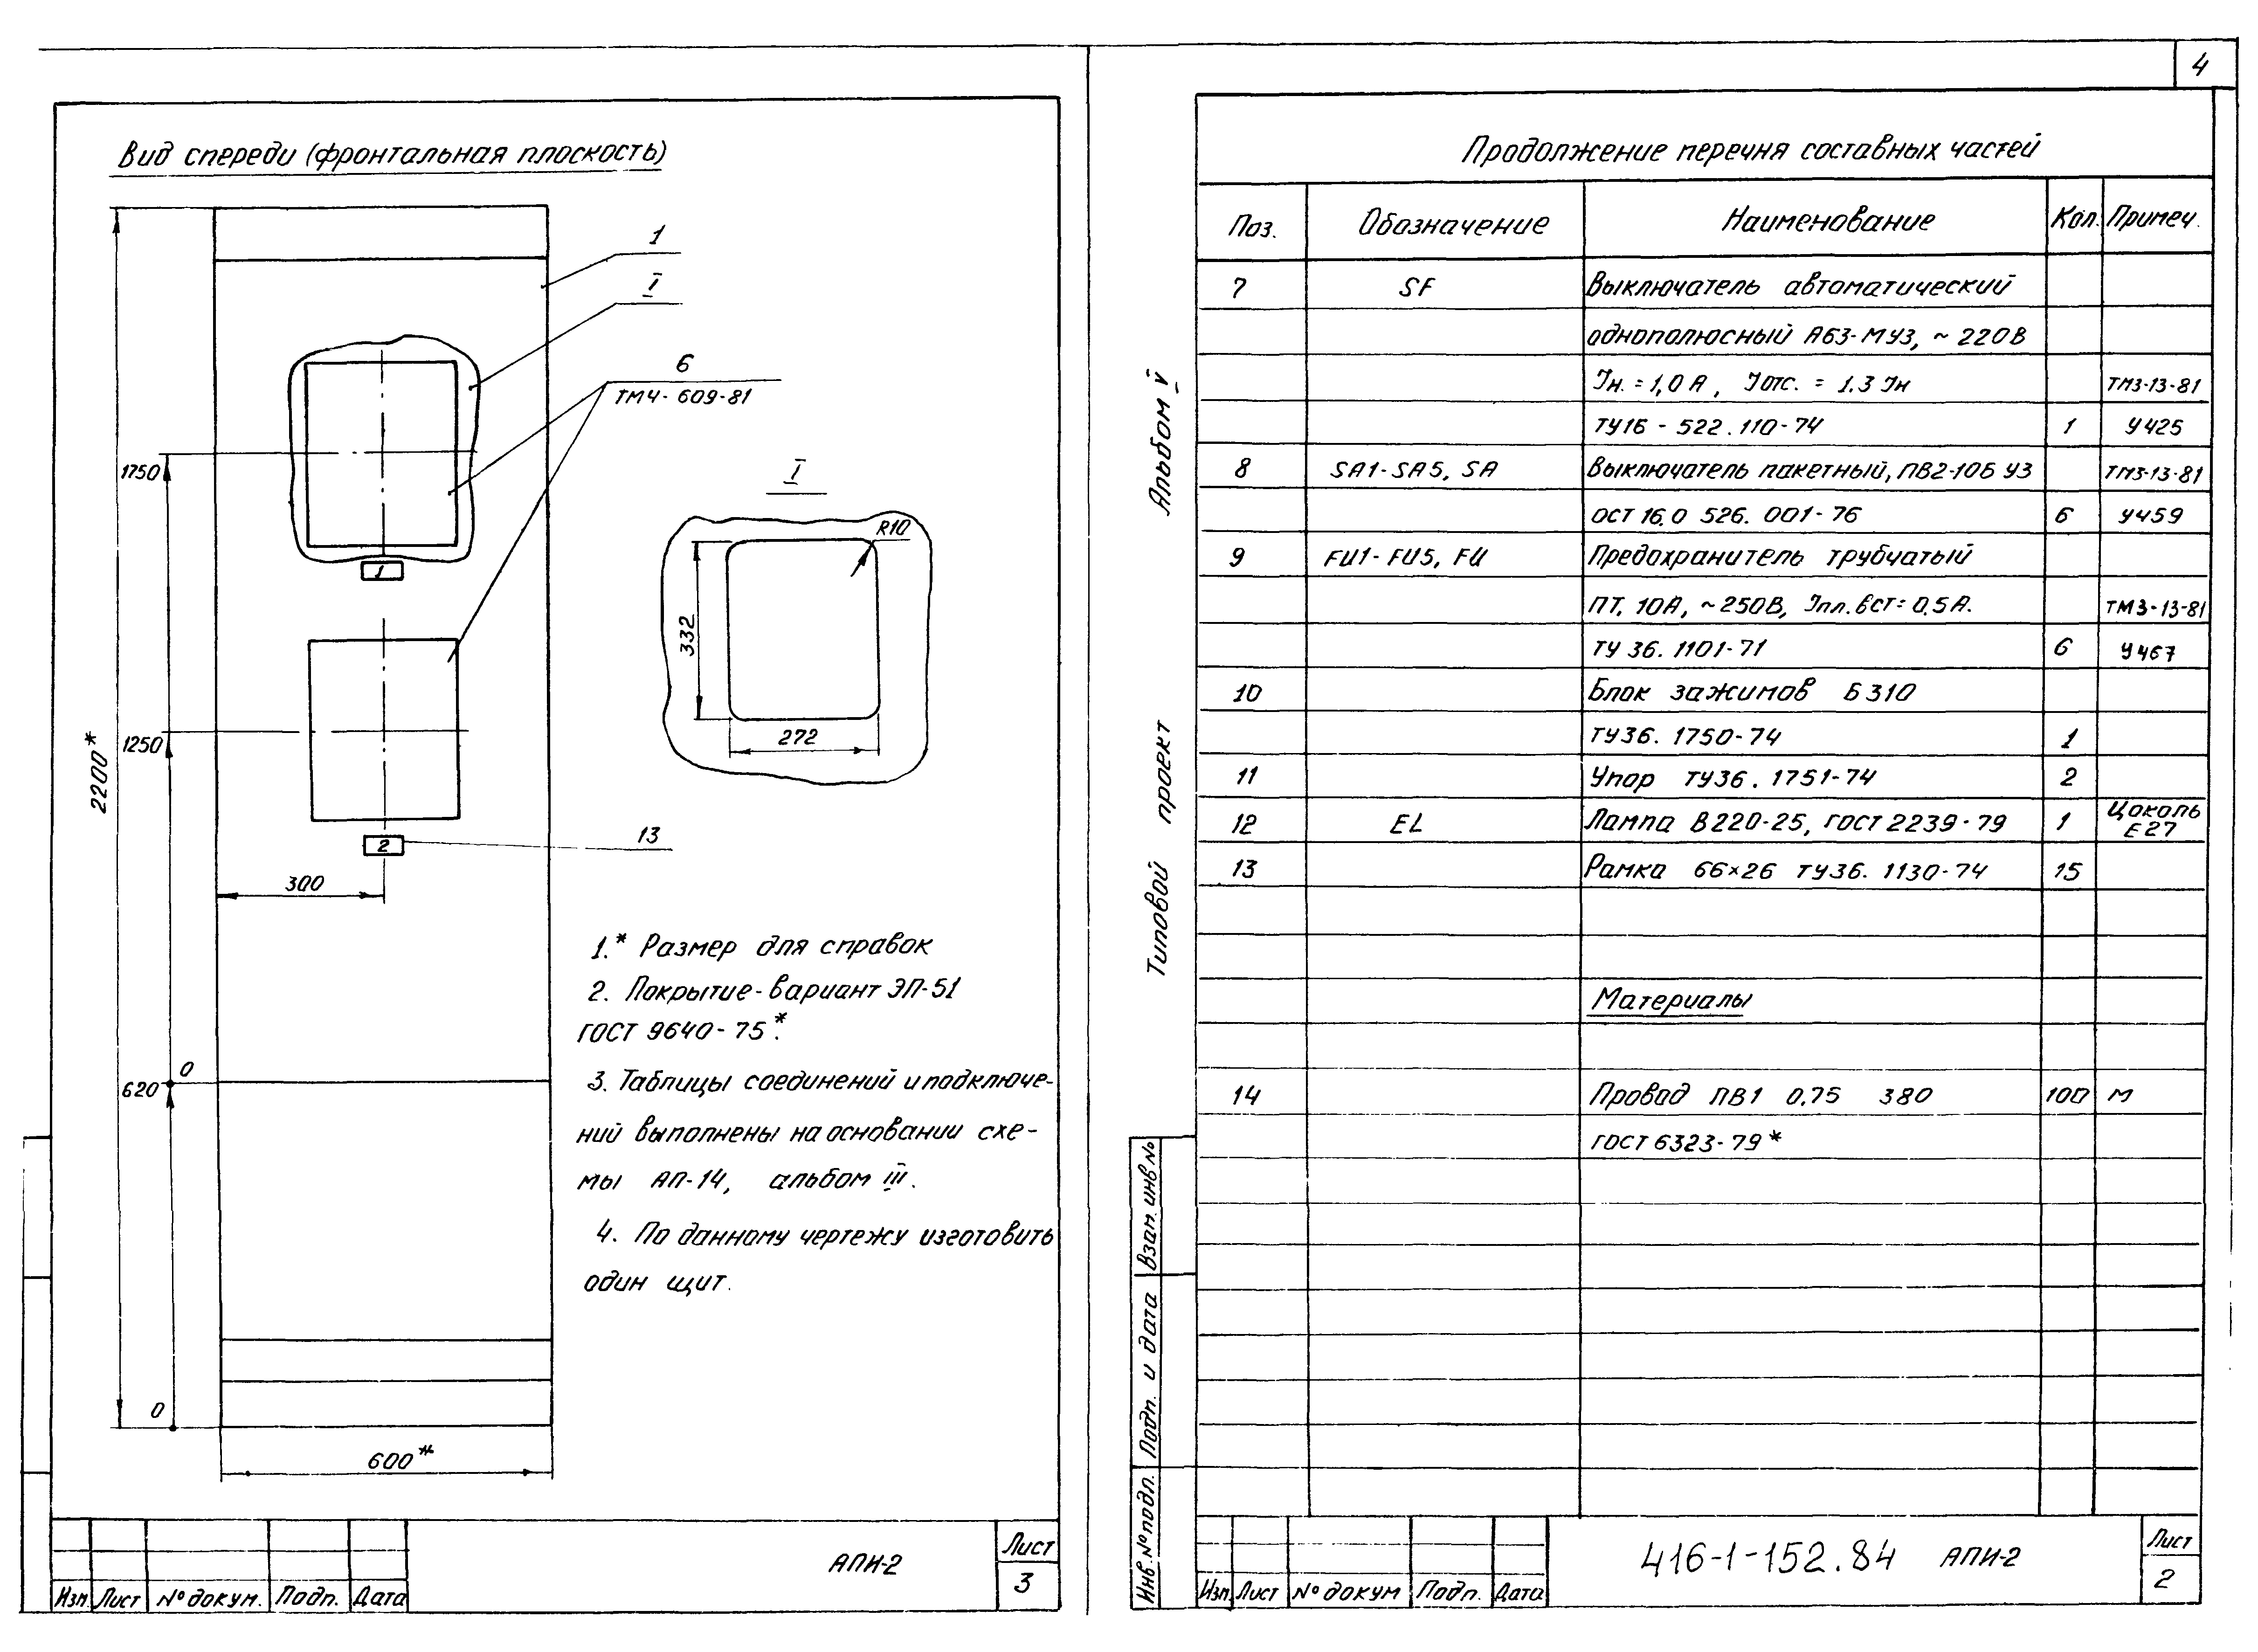 4
Вид спереди (фронтальная плоскость)
1
I
6
ТМЧ-609-81
1750
1
I
R10
332
272
1250
2200*
2
13
300
620
0
0
600*
1.* Размер для справок
2. Покрытие-вариант ЭП-51
ГОСТ 9640-75*.
3. Таблицы соединений и подключе-
ний выполнены на основании схе-
мы АП-14, альбом III.
4. По данному чертежу изготовить
один щит.
АПИ-2
Лист
3
Изм Лист № докум. Подп. Дата
Альбом V
Типовой проект
Взам. инв №
Подп. и дата
Инв. № подл.
Продолжение перечня составных частей
Поз. Обозначение Наименование Кол. Примеч.
7 SF Выключатель автоматический
однополюсный А63-МУ3, ~ 220В
Iн. = 1,0 А, Iотс. = 1.3 Iн ТМ3-13-81
ТУ16 - 522.110-74 1 У425
8 SA1-SA5, SA Выключатель пакетный, ПВ2-10Б У3 ТМ3-13-81
ОСТ 16.0 526. 001-76 6 У459
9 FU1-FU5, FU Предохранитель трубчатый
ПТ, 10А, ~250В, Iпл.вст= 0.5А. ТМ3-13-81
ТУ 36. 1101-71 6 У467
10 Блок зажимов Б310
ТУ36. 1750-74 1
11 Упор ТУ36. 1751-74 2
12 EL Лампа В220-25, ГОСТ 2239-79 1 Цоколь Е27
13 Рамка 66×26 ТУ36. 1130-74 15
Материалы
14 Провод ПВ1 0.75 380 100 м
ГОСТ 6323-79*
416-1-152.84 АПИ-2
Лист
2
Изм. Лист № докум Подп. Дата